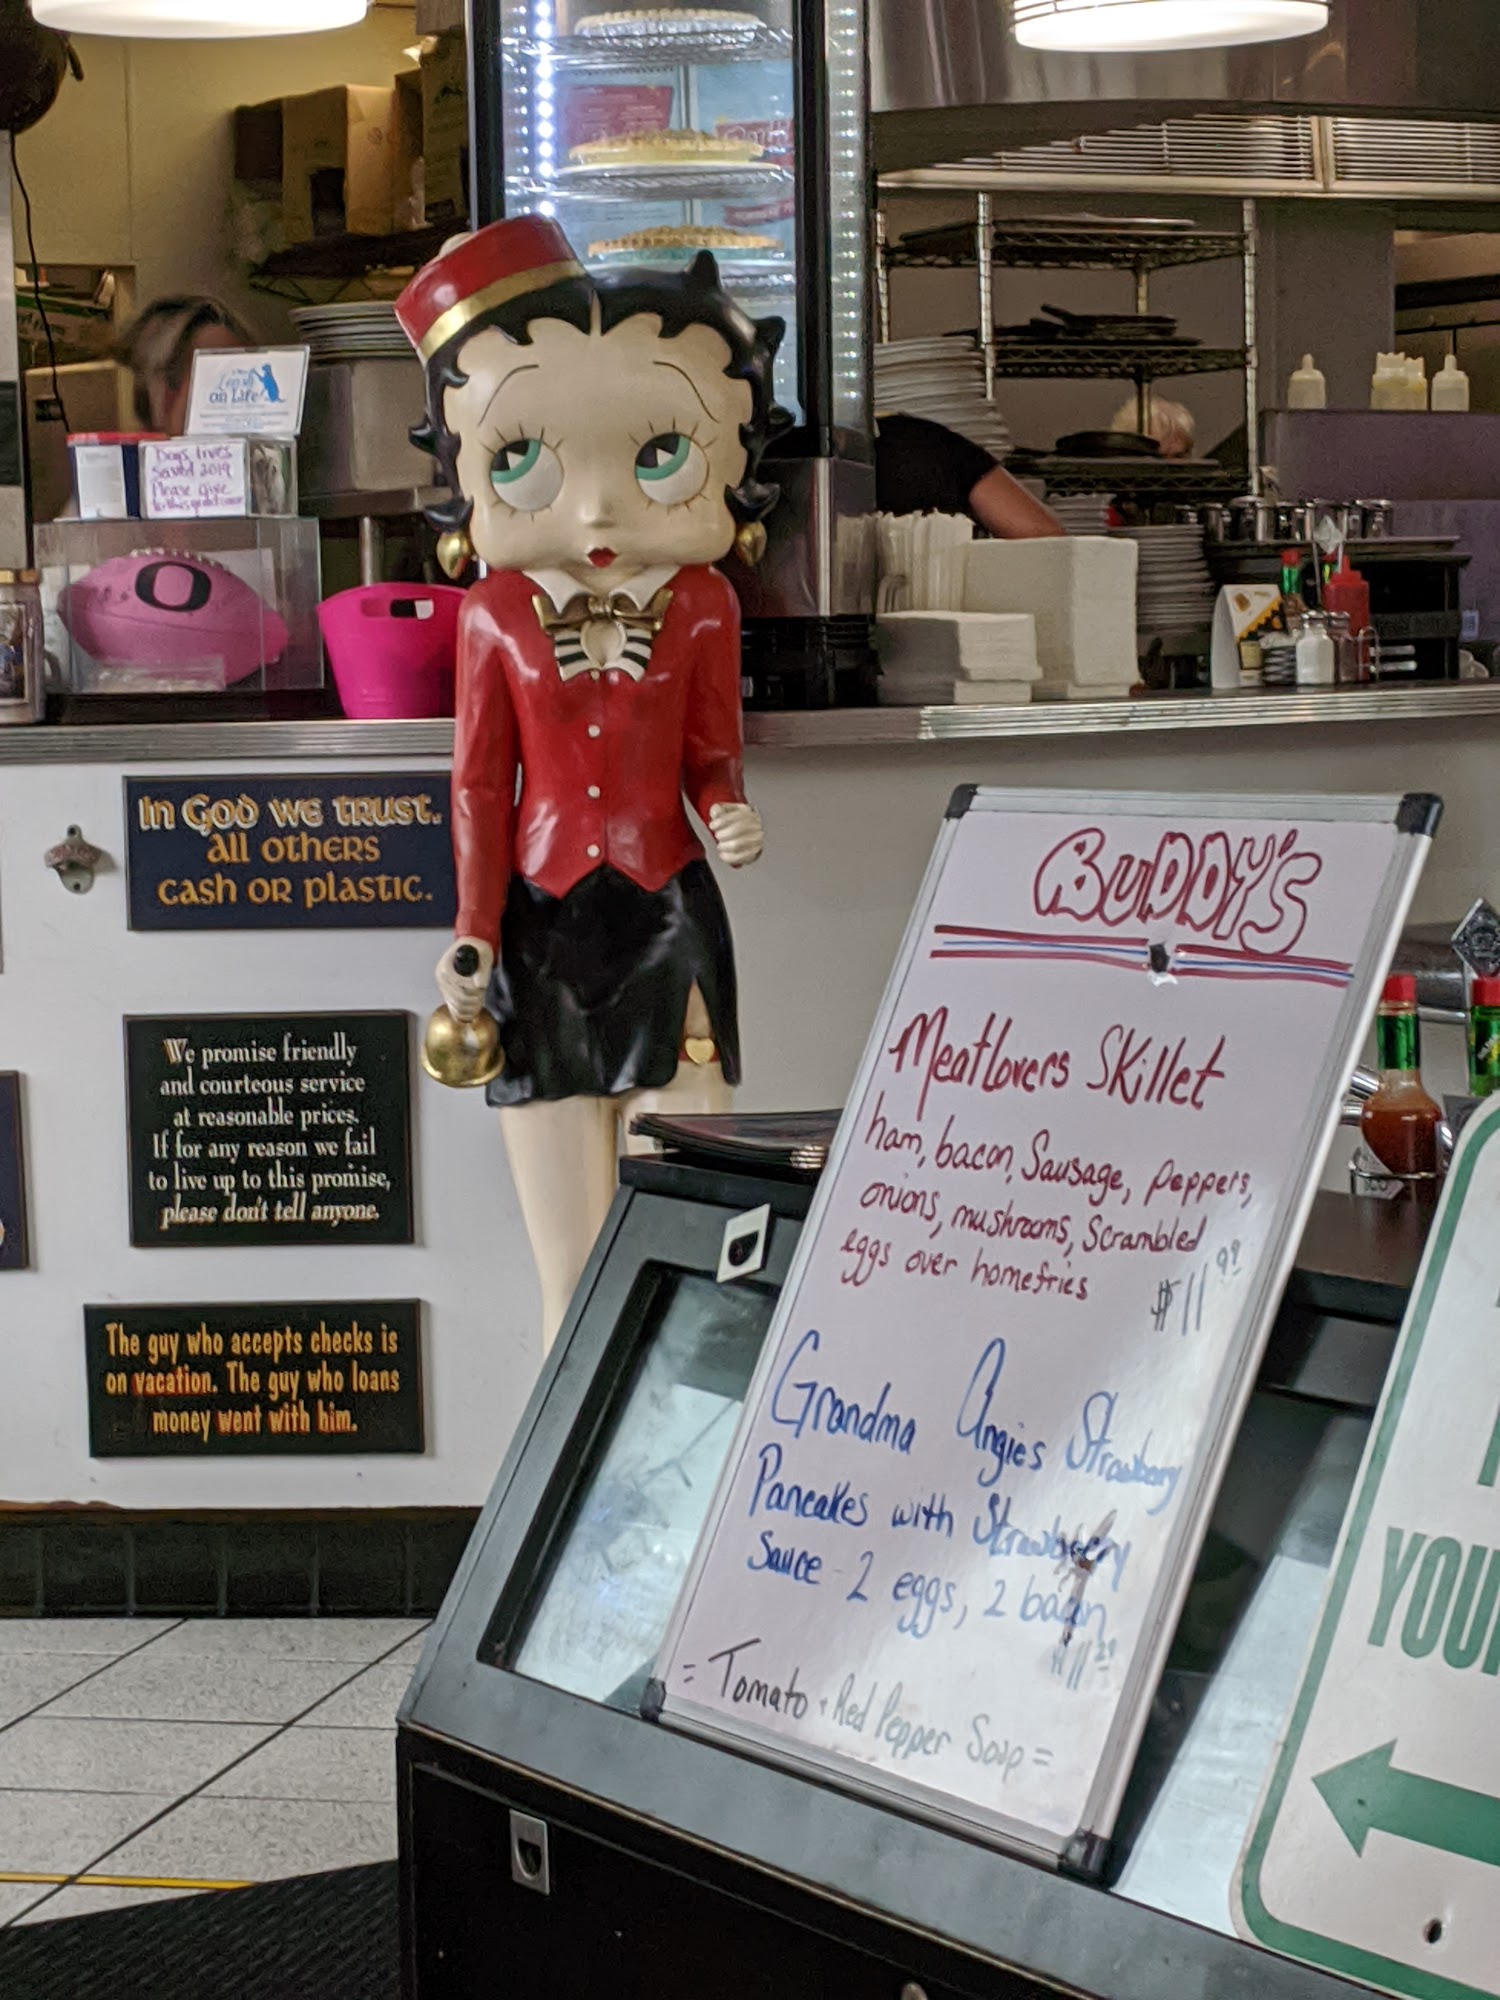 Leash
on Life!
Dogs lives
Saved 2019
Please give
O
In God we trust.
all others
cash or plastic.
We promise friendly
and courteous service
at reasonable prices.
If for any reason we fail
to live up to this promise,
please don't tell anyone.
The guy who accepts checks is
on vacation. The guy who loans
money went with him.
BUDDY'S
Meatlovers Skillet
ham, bacon, Sausage, peppers,
onions, mushrooms, Scrambled
eggs over homefries
$11.99
Grandma Angies Strawberry
Pancakes with Strawberry
Sauce - 2 eggs, 2 bacon
= Tomato + Red Pepper Soup =
YOU